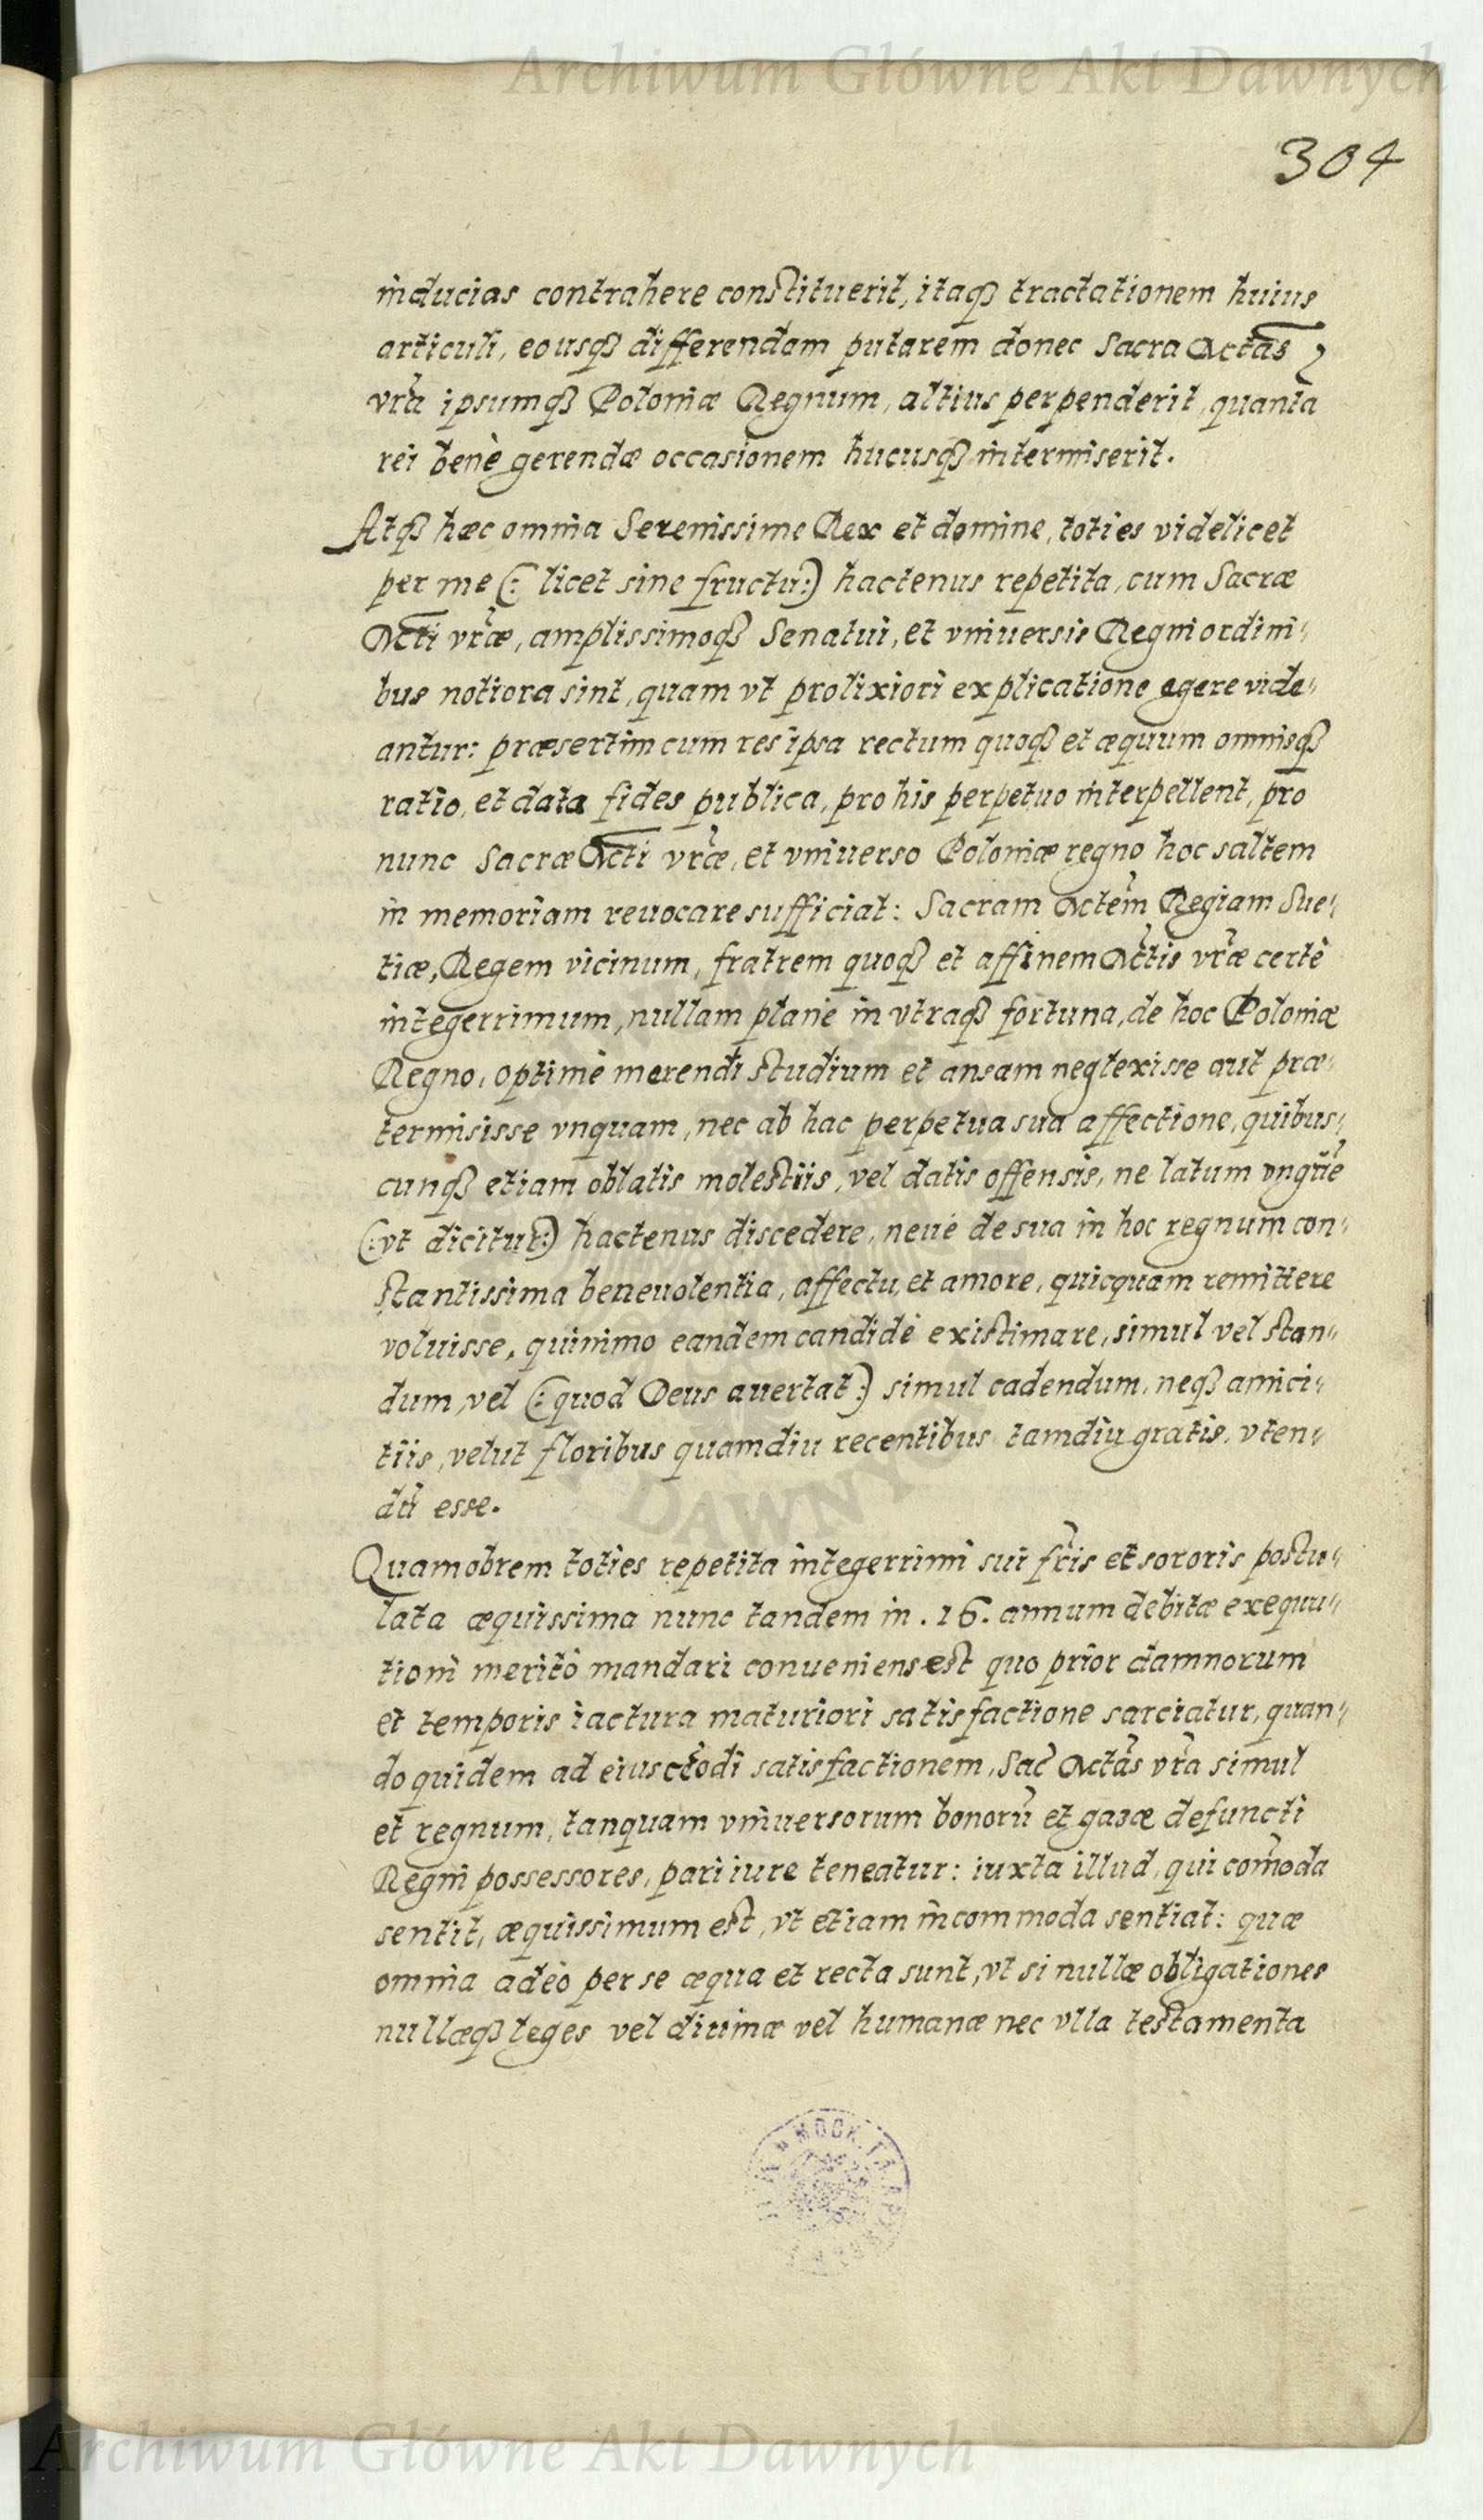 Archiwum Główne Akt Dawnych
304
inducias contrahere constituerit, itaqꝫ tractationem huius
articuli, eousqꝫ differendam putarem donec Sacra Mctas
vrã ipsumqꝫ Poloniæ Regnum, altius perpenderit, quantã
rei benè gerendæ occasionem hucusqꝫ intermiserit.
Atqꝫ hæc omnia Serenissime Rex et domine, toties videlicet
per me (: licet sine fructu:) hactenus repetita, cum Sacræ
Mcti vræ, amplissimoqꝫ Senatui, et vniuersis Regni ordini„
bus notiora sint, quam vt prolixiori explicatione egere vide„
antur: præsertim cum res ipsa rectum quoqꝫ et æquum omnisqꝫ
ratio, et data fides publica, pro his perpetuo interpellent, pro
nunc Sacræ Mcti vræ, et vniuerso Poloniæ regno hoc saltem
in memoriam reuocare sufficiat: Sacram Mctem Regiam Sue„
tiæ, Regem vicinum, fratrem quoqꝫ et affinem Mctis vræ certè
integerrimum, nullam planè in vtraqꝫ fortuna, de hoc Poloniæ
Regno, optimè merendi studium et ansam neglexisse aut præ„
termisisse vnquam, nec ab hac perpetua sua affectione, quibus„
cunqꝫ etiam oblatis molestiis, vel datis offensis, ne latum vnguẽ
(:vt dicitur:) hactenus discedere, neuè de sua in hoc regnum con„
stantissima beneuolentia, affectu, et amore, quicquam remittere
voluisse, quinimo eandem candidè existimare, simul vel stan„
dum, vel (:quod Deus auertat:) simul cadendum, neqꝫ amici„
tiis, velut floribus quamdiu recentibus tamdiu gratis, vten„
dũ esse.
Quamobrem toties repetita integerrimi sui fr̃is et sororis postu„
lata æquissima nunc tandem in .16. annum debitæ exequu„
tioni meritò mandari conueniens est quo prior damnorum
et temporis iactura maturiori satisfactione sarciatur, quan„
doquidem ad eiuscẽodi satisfactionem, Sac̃ Mctas vrã simul
et regnum, tanquam vniuersorum bonorũ et gazæ defuncti
Regni possessores, pari iure teneatur: iuxta illud, qui com̃oda
sentit, æquissimum est, vt etiam incommoda sentiat: quæ
omnia adeò per se æqua et recta sunt, vt si nullæ obligationes
nullæqꝫ leges vel diuinæ vel humanæ nec vlla testamenta
DAWNY
Archiwum Główne Akt Dawnych